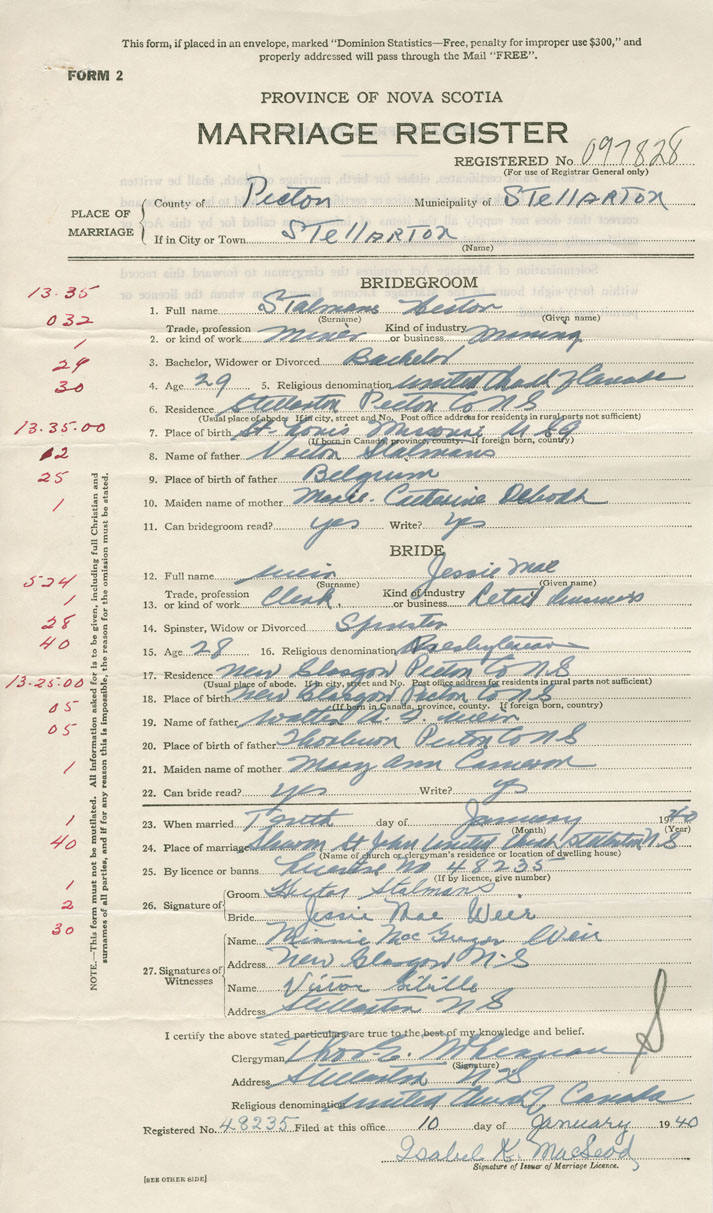 This form, if placed in an envelope, marked "Dominion Statistics—Free, penalty for improper use $300," and
properly addressed will pass through the Mail "FREE".
FORM 2
PROVINCE OF NOVA SCOTIA
MARRIAGE REGISTER
REGISTERED No 097828
(For use of Registrar General only)
PLACE OF MARRIAGE
County of Pictou Municipality of Stellarton
If in City or Town Stellarton
(Name)
BRIDEGROOM
13.35
1. Full name Stalmans
(Surname) (Given name)
032
2. Trade, profession or kind of work Miner Kind of industry or business Mining
1
3. Bachelor, Widower or Divorced Bachelor
29
4. Age 29 5. Religious denomination United Church of Canada
30
6. Residence Stellarton Pictou Co N S
(Usual place of abode. If in city, street and No. Post office address for residents in rural parts not sufficient)
13.35.00
7. Place of birth St. Louis Missouri U S A
(If born in Canada, province, county. If foreign born, country)
12
8. Name of father Stalmans
25
9. Place of birth of father Belgium
1
10. Maiden name of mother Marie Catherine
11. Can bridegroom read? yes Write? yes
BRIDE
524
12. Full name Weir Jessie Mae
(Surname) (Given name)
1
13. Trade, profession or kind of work Clerk Kind of industry or business Retail business
28
14. Spinster, Widow or Divorced Spinster
40
15. Age 28 16. Religious denomination Presbyterian
17. Residence New Glasgow Pictou Co N S
(Usual place of abode. If in city, street and No. Post office address for residents in rural parts not sufficient)
13.25.00
18. Place of birth New Glasgow Pictou Co N S
(If born in Canada, province, county. If foreign born, country)
05
19. Name of father Weir
05
20. Place of birth of father Thorburn Pictou Co N S
1
21. Maiden name of mother Mary Ann Cameron
22. Can bride read? yes Write? yes
1
23. When married Tenth day of January 1940
(Month) (Year)
40
24. Place of marriage Sharon St John United Church Stellarton N S
(Name of church or clergyman's residence or location of dwelling house)
25. By licence or banns Licence No 48235
(If by licence, give number)
1
26. Signature of Groom Hector Stalmans
2
Bride Jessie Mae Weir
30
27. Signatures of Witnesses
Name Minnie MacGregor Weir
Address New Glasgow N.S
Name Victor
Address Stellarton N S
NOTE.—This form must not be mutilated. All information asked for is to be given, including full Christian and
surnames of all parties, and if for any reason this is impossible, the reason for the omission must be stated.
I certify the above stated particulars are true to the best of my knowledge and belief.
Clergyman
(Signature)
Address Stellarton N S
Religious denomination United Church of Canada
Registered No. 48235 Filed at this office 10 day of January 1940
Isabel K. MacLeod
Signature of Issuer of Marriage Licence.
[SEE OTHER SIDE]